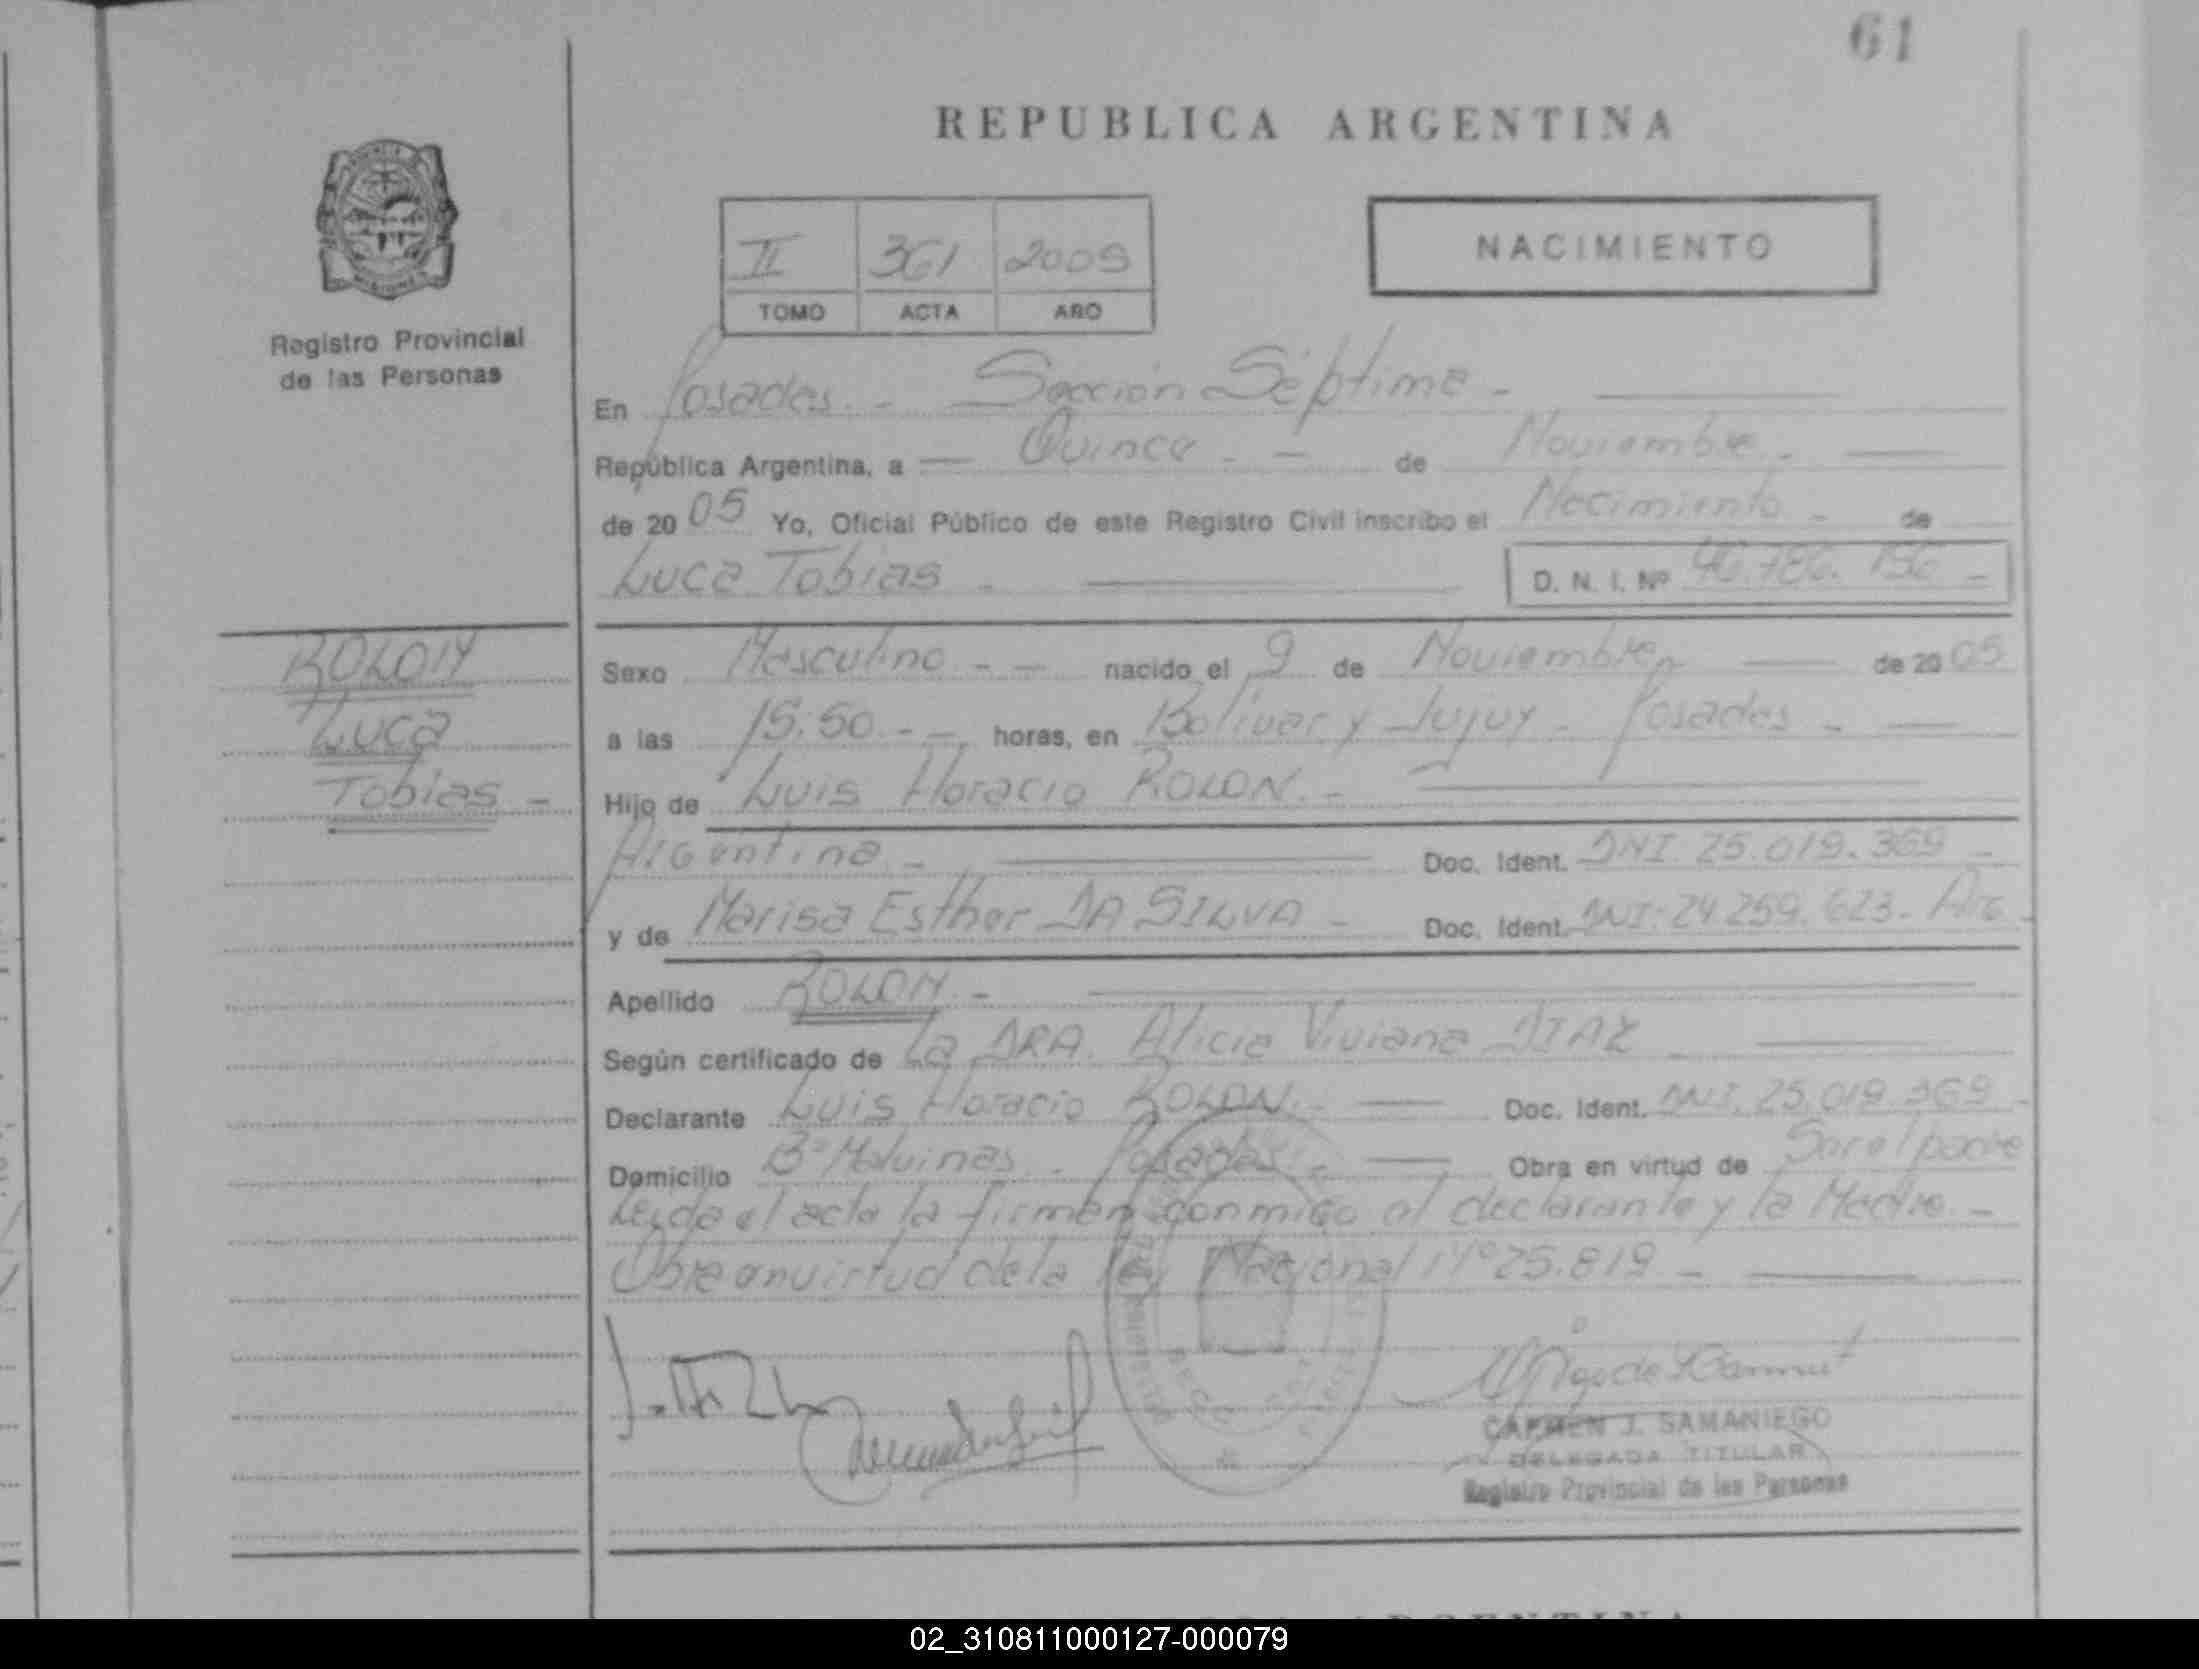 61
REPUBLICA ARGENTINA
II 361 2005
TOMO ACTA AÑO
NACIMIENTO
Registro Provincial
de las Personas
En Posadas. - Sección Séptima -
República Argentina, a — Quince - — de Noviembre -
de 20 05 Yo, Oficial Público de este Registro Civil inscribo el Nacimiento - de
Luca Tobias - D. N. I. Nº 46.786.156 -
ROLON
Luca
Tobias -
Sexo Masculino - - nacido el 9 de Noviembre, de 20 05
a las 15:50 - - horas, en Bolivar y Jujuy - Posadas -
Hijo de Luis Horacio ROLON. -
Argentina - Doc. Ident. DNI. 25.019.369 -
y de Marisa Esther DA SILVA - Doc. Ident. DNI: 24.259.623 - Arg -
Apellido ROLON. -
Según certificado de La DRA. Alicia Viviana DIAZ -
Declarante Luis Horacio ROLON. - Doc. Ident. DNI. 25.019.369 -
Domicilio Bº Malvinas - Posadas - Obra en virtud de Ser el padre
Leida el acta la firman conmigo el declarante y la Madre. -
Obra en virtud de la ley Nacional Nº 25.819 -
CARMEN J. SAMANIEGO
DELEGADA TITULAR
Registro Provincial de las Personas
REPUBLICA ARGENTINA
02_310811000127-000079